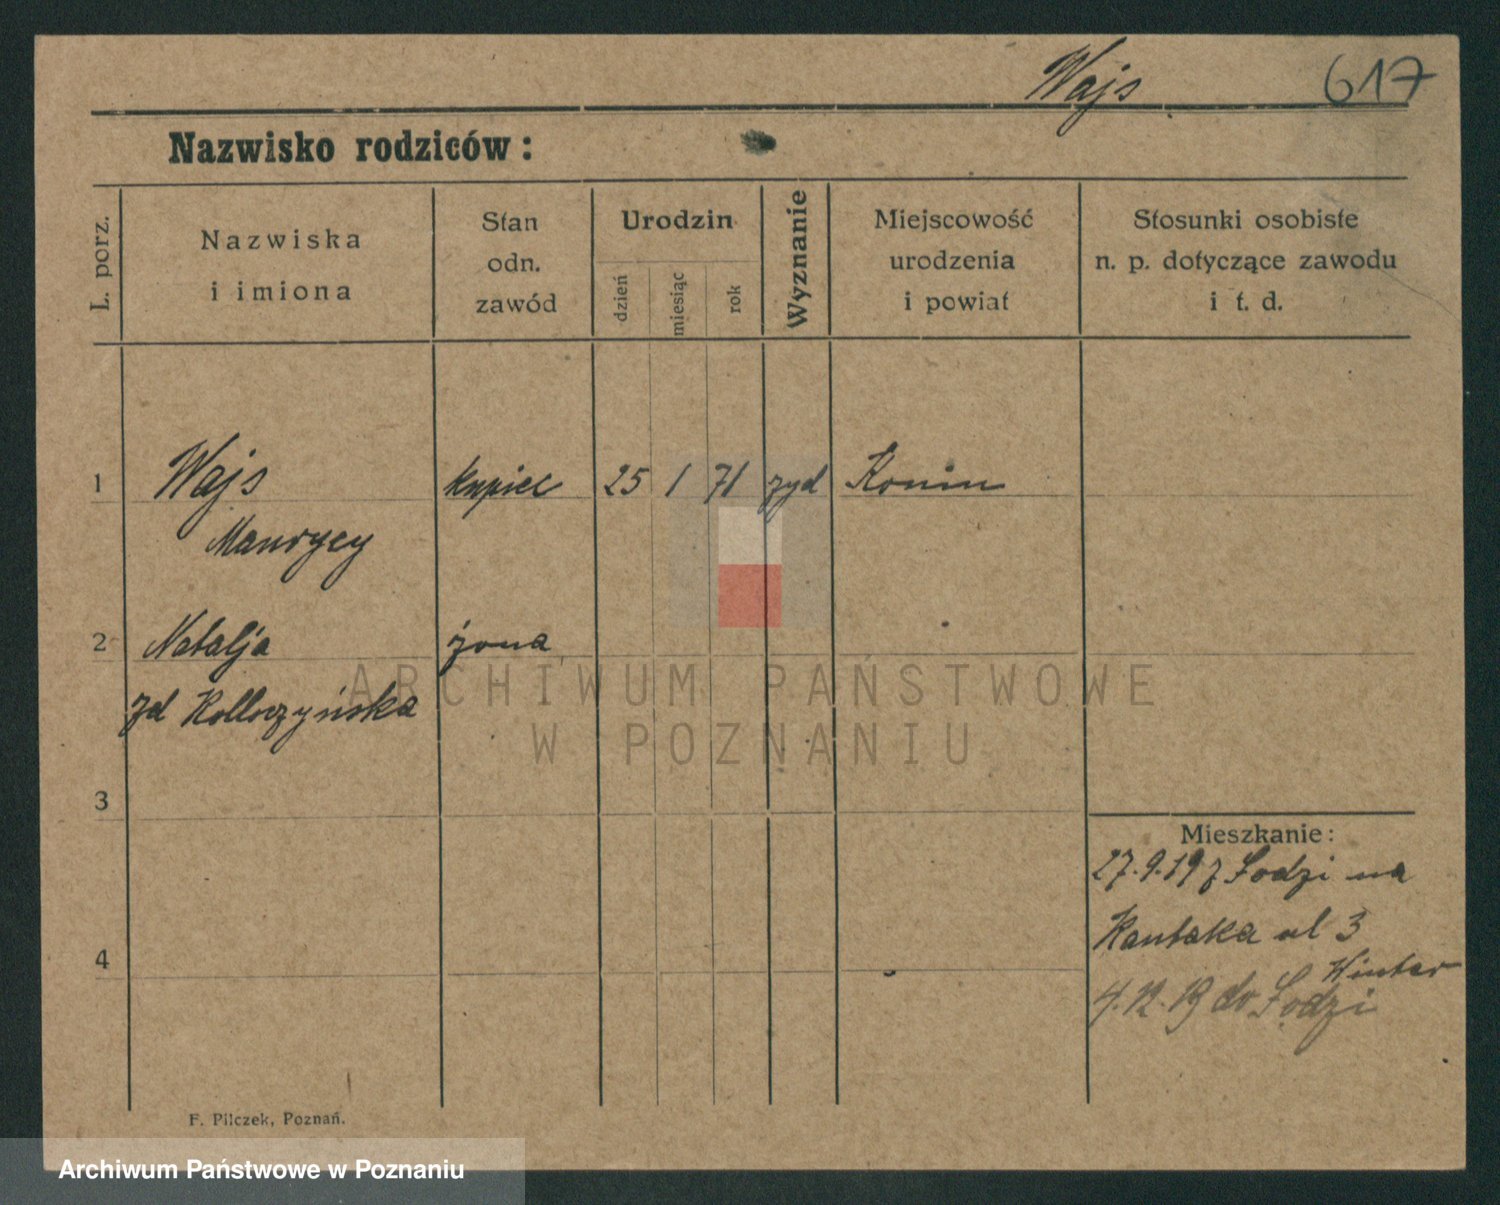 Wajs 617
Nazwisko rodziców:
L. porz.
Nazwiska
i imiona
Stan
odn.
zawód
Urodzin
dzień
miesiąc
rok
Wyznanie
Miejscowość
urodzenia
i powiat
Stosunki osobiste
n. p. dotyczące zawodu
i t. d.
1 Wajs kupiec 25 1 71 żyd Konin
Maurycy
2 Natalja żona
zd
ARCHIWUM PAŃSTWOWE
W POZNANIU
3
Mieszkanie:
27.9.19 z Łodzi na
Kantaka ul 3
4
Winter
4.12.19 do Łodzi
F. Pilczek, Poznań.
Archiwum Państwowe w Poznaniu